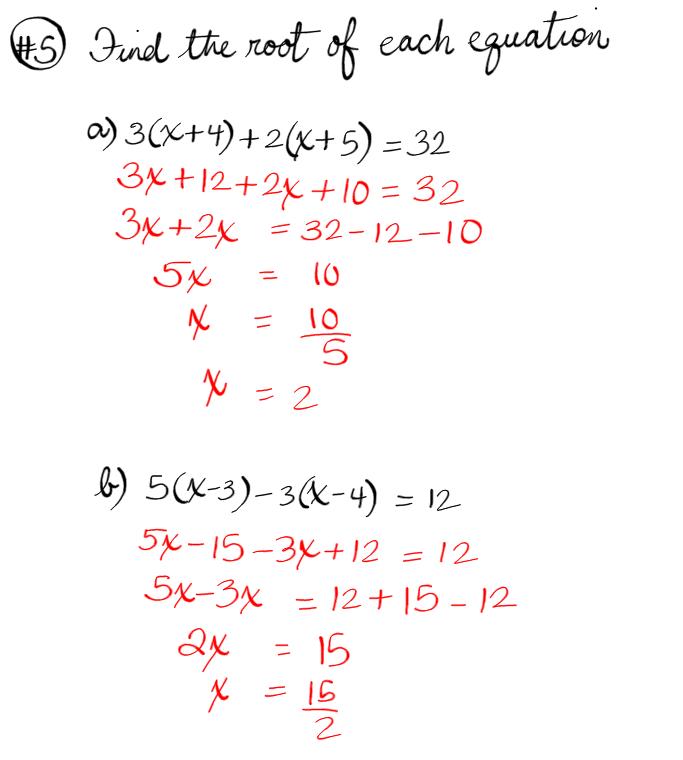 #5 Find the root of each equation
a) 3(x+4)+2(x+5) = 32
3x+12+2x+10 = 32
3x+2x = 32-12-10
5x = 10
x = 10/5
x = 2
b) 5(x-3)-3(x-4) = 12
5x-15-3x+12 = 12
5x-3x = 12+15-12
2x = 15
x = 15/2